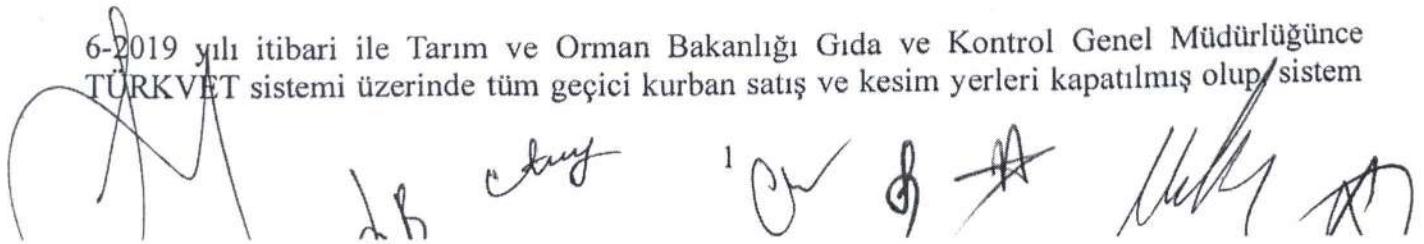 6-2019 yılı itibari ile Tarım ve Orman Bakanlığı Gıda ve Kontrol Genel Müdürlüğünce
TÜRKVET sistemi üzerinde tüm geçici kurban satış ve kesim yerleri kapatılmış olup sistem
1